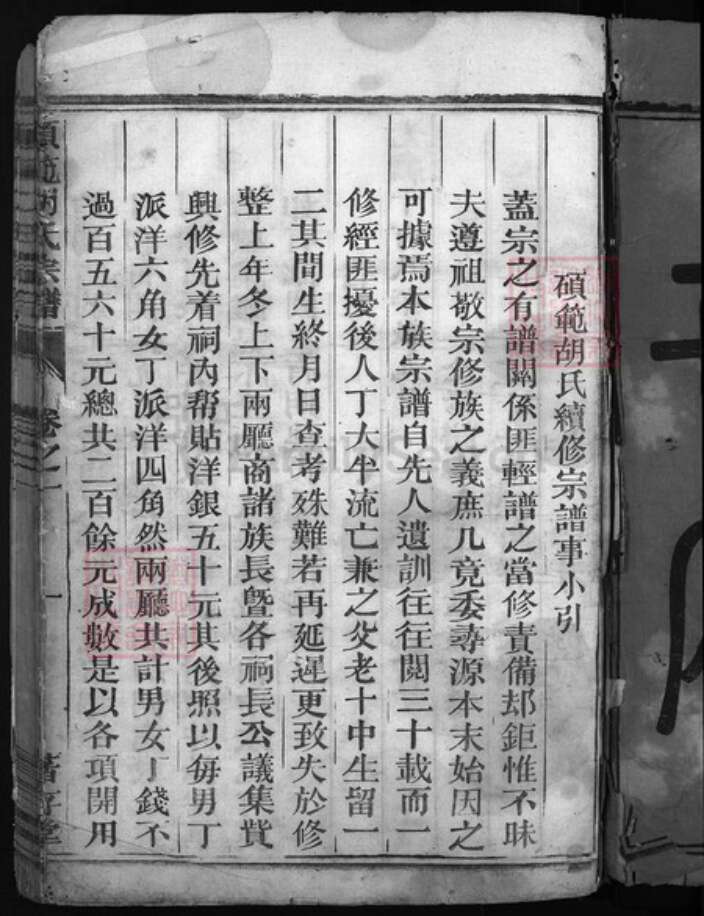 碩範胡氏續修宗譜事小引
蓋宗之有譜關係匪輕譜之當修責備却鉅惟不昧
夫遵祖敬宗修族之義庶几竟委尋源本末始因之
可據焉本族宗譜自先人遺訓往往閱三十載而一
修經匪擾後人丁大半流亡兼之父老十中生留一
二其間生終月日查考殊難若再延遲更致失於修
整上年冬上下兩廳商諸族長曁各祠長公議集貲
興修先着祠內帮貼洋銀五十元其後照以每男丁
派洋六角女丁派洋四角然兩廳共計男女丁錢不
過百五六十元總共二百餘元成數是以各項開用
碩範胡氏宗譜
卷之一
一